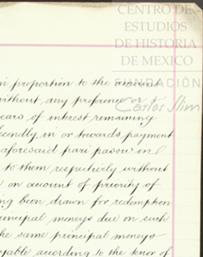 CENTRO DE
ESTUDIOS
DE HISTORIA
DE MEXICO
FUNDACIÓN
Carlos Slim
in proportion to the amount
without any preference or
ears of interest remaining
econdly in or towards payment
aforesaid pari passu and
to them respectively without
on account of priority of
ng been drawn for redemption
incipal moneys due on such
he same principal moneys
yable according to the tenor of